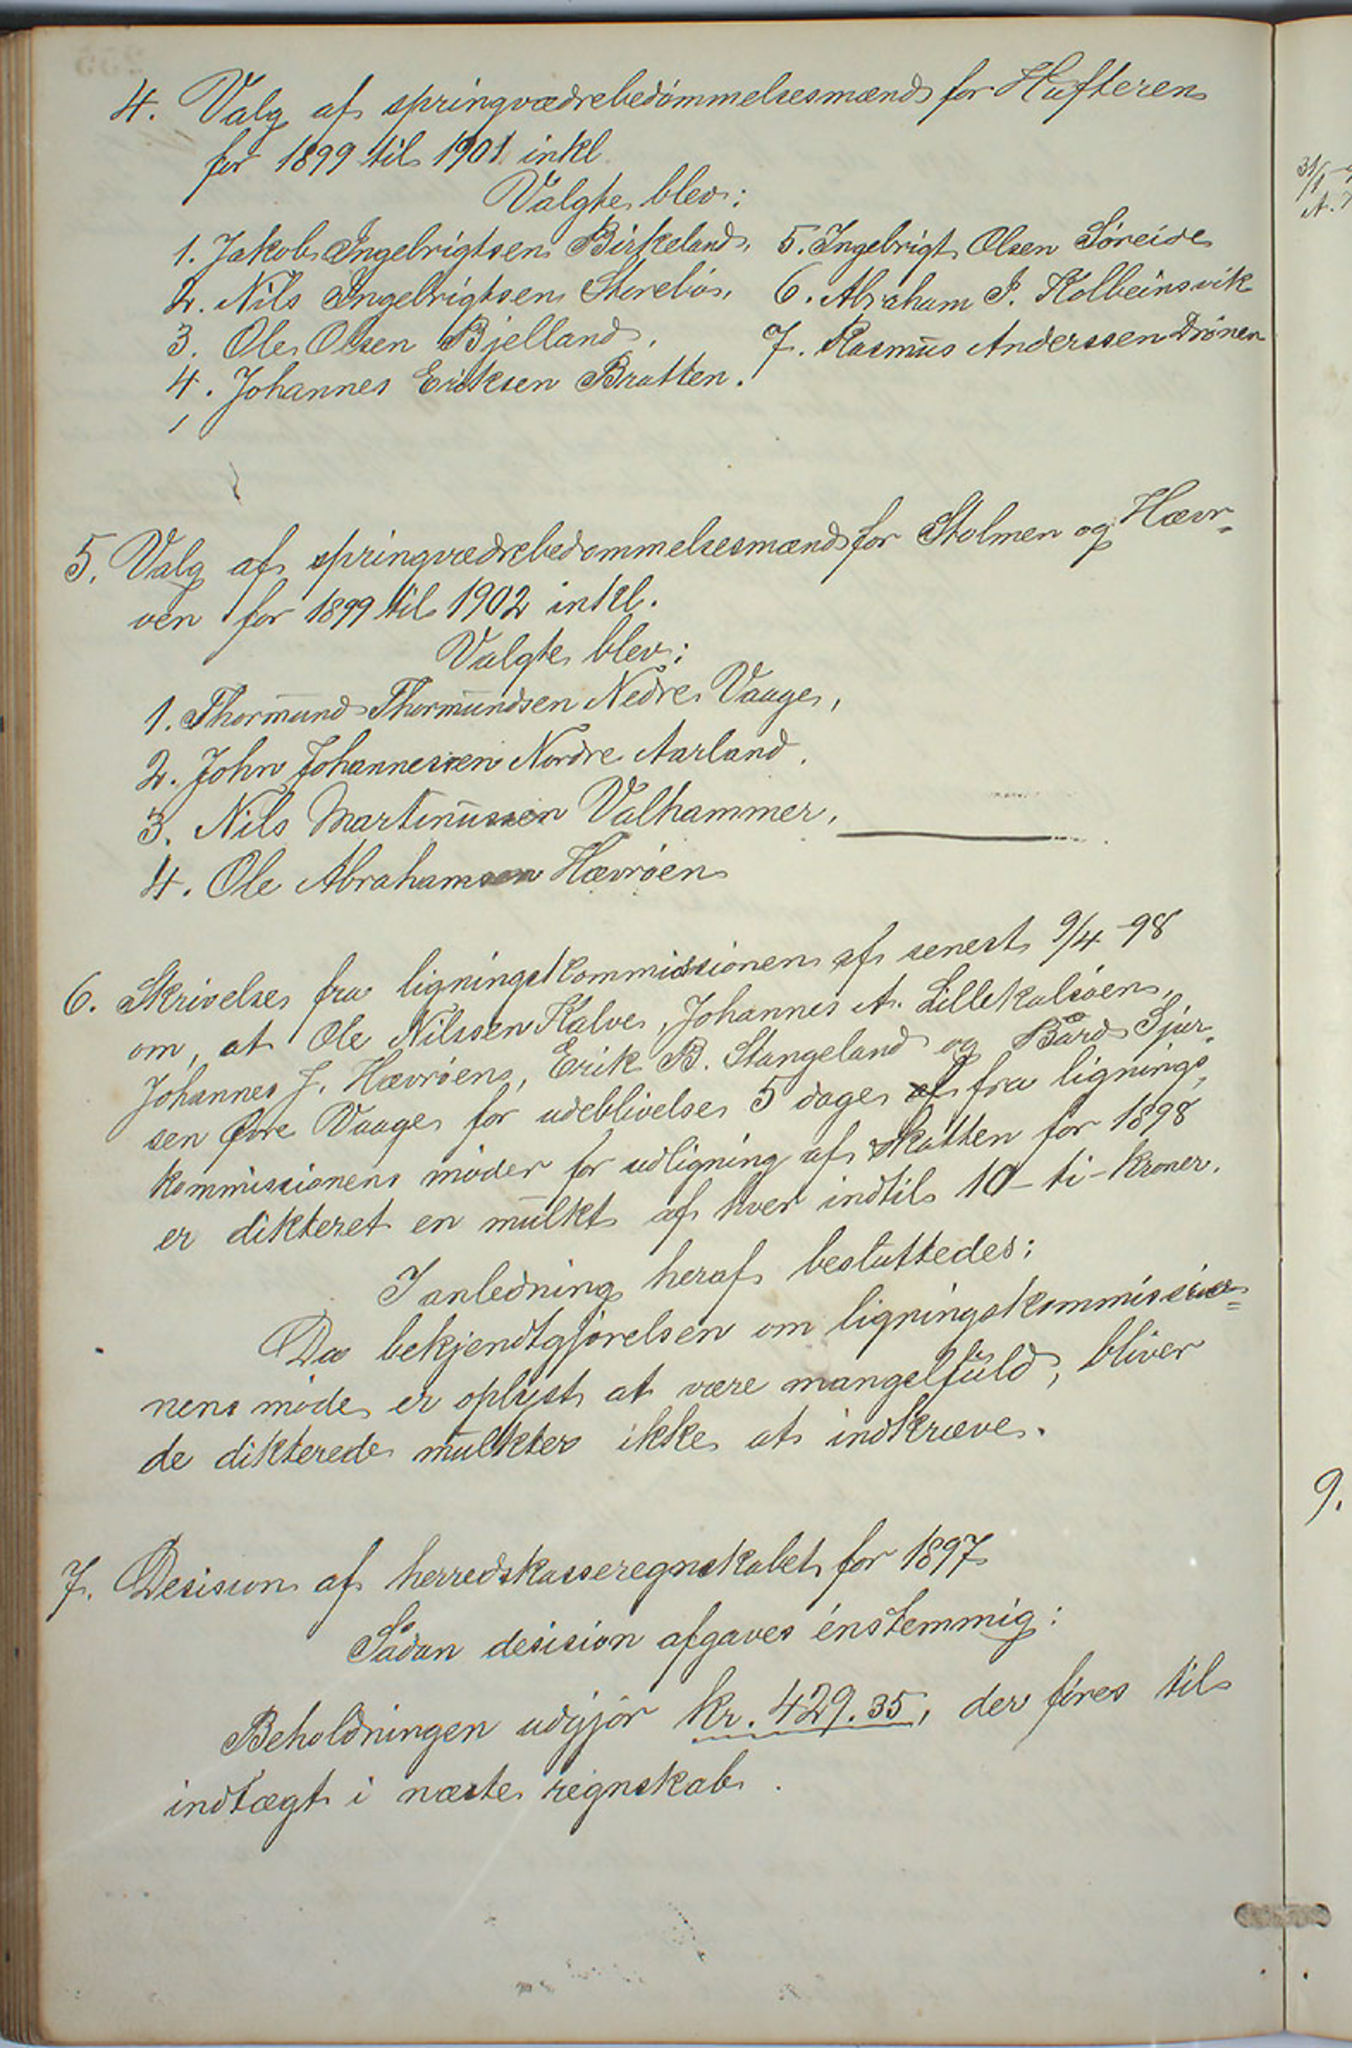 4. Valg af springvædrebedømmelsesmænd for Hufteren
for 1899 til 1901 inkl.
Valgte blev:
1. Jakob Ingebrigtsen Birkeland.
2. Nils Ingebrigtsen Storebø.
3. Ole Olsen Bjelland.
4. Johannes Eriksen Bratten.
5. Ingebrigt Olsen Søreide
6. Abraham I. Kolbeinsvik
7. Rasmus Anderssen Drönen
5. Valg af springvædrebedømmelsesmænd for Stolmen og Hævr-
øen for 1899 til 1902 inkl.
Valgte blev:
1. Thormund Thormundsen Nedre Vaage,
2. John Johannessen Nordre Aarland.
3. Nils Martinussen Valhammer.
4. Ole Abrahamsen Hævrøen
6. Skrivelse fra ligningskommissionen af senest 9/4 98
om, at Ole Nilssen Kalve, Johannes A. Lillekalsøen,
Johannes J. Hævrøen, Erik B. Stangeland og Bård Sjur-
sen Øvre Vaage for udeblivelse 5 dage fra lignings-
kommissionens møder for udligning af skatten for 1898
er dikteret en mulkt af hver indtil 10 – ti – kroner.
I anledning heraf besluttedes:
Da bekjendtgjørelsen om ligningskommissio=
nens møde er oplyst at være mangelfuld, bliver
de dikterede mulkter ikke at indkræve.
7. Desision af herredskasseregnskabet for 1897
Sådan desision afgaves énstemmig:
Beholdningen udgjør kr. 429.35, der føres til
indtægt i næste regnskab.
31/1
A.
9.